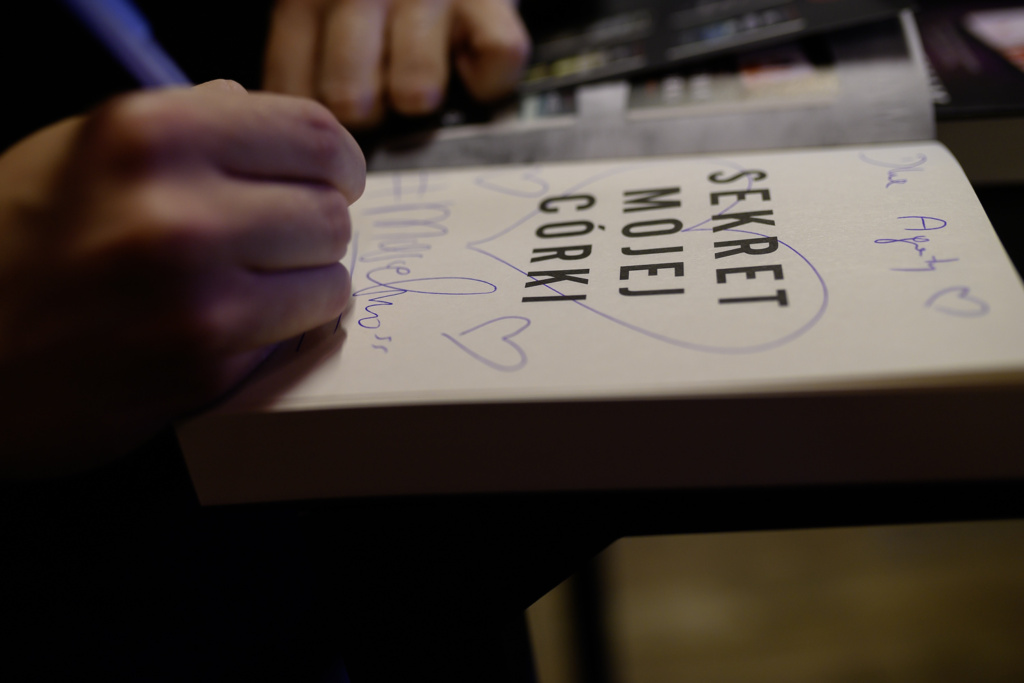 Dla
Agaty
SEKRET
MOJEJ
CÓRKI